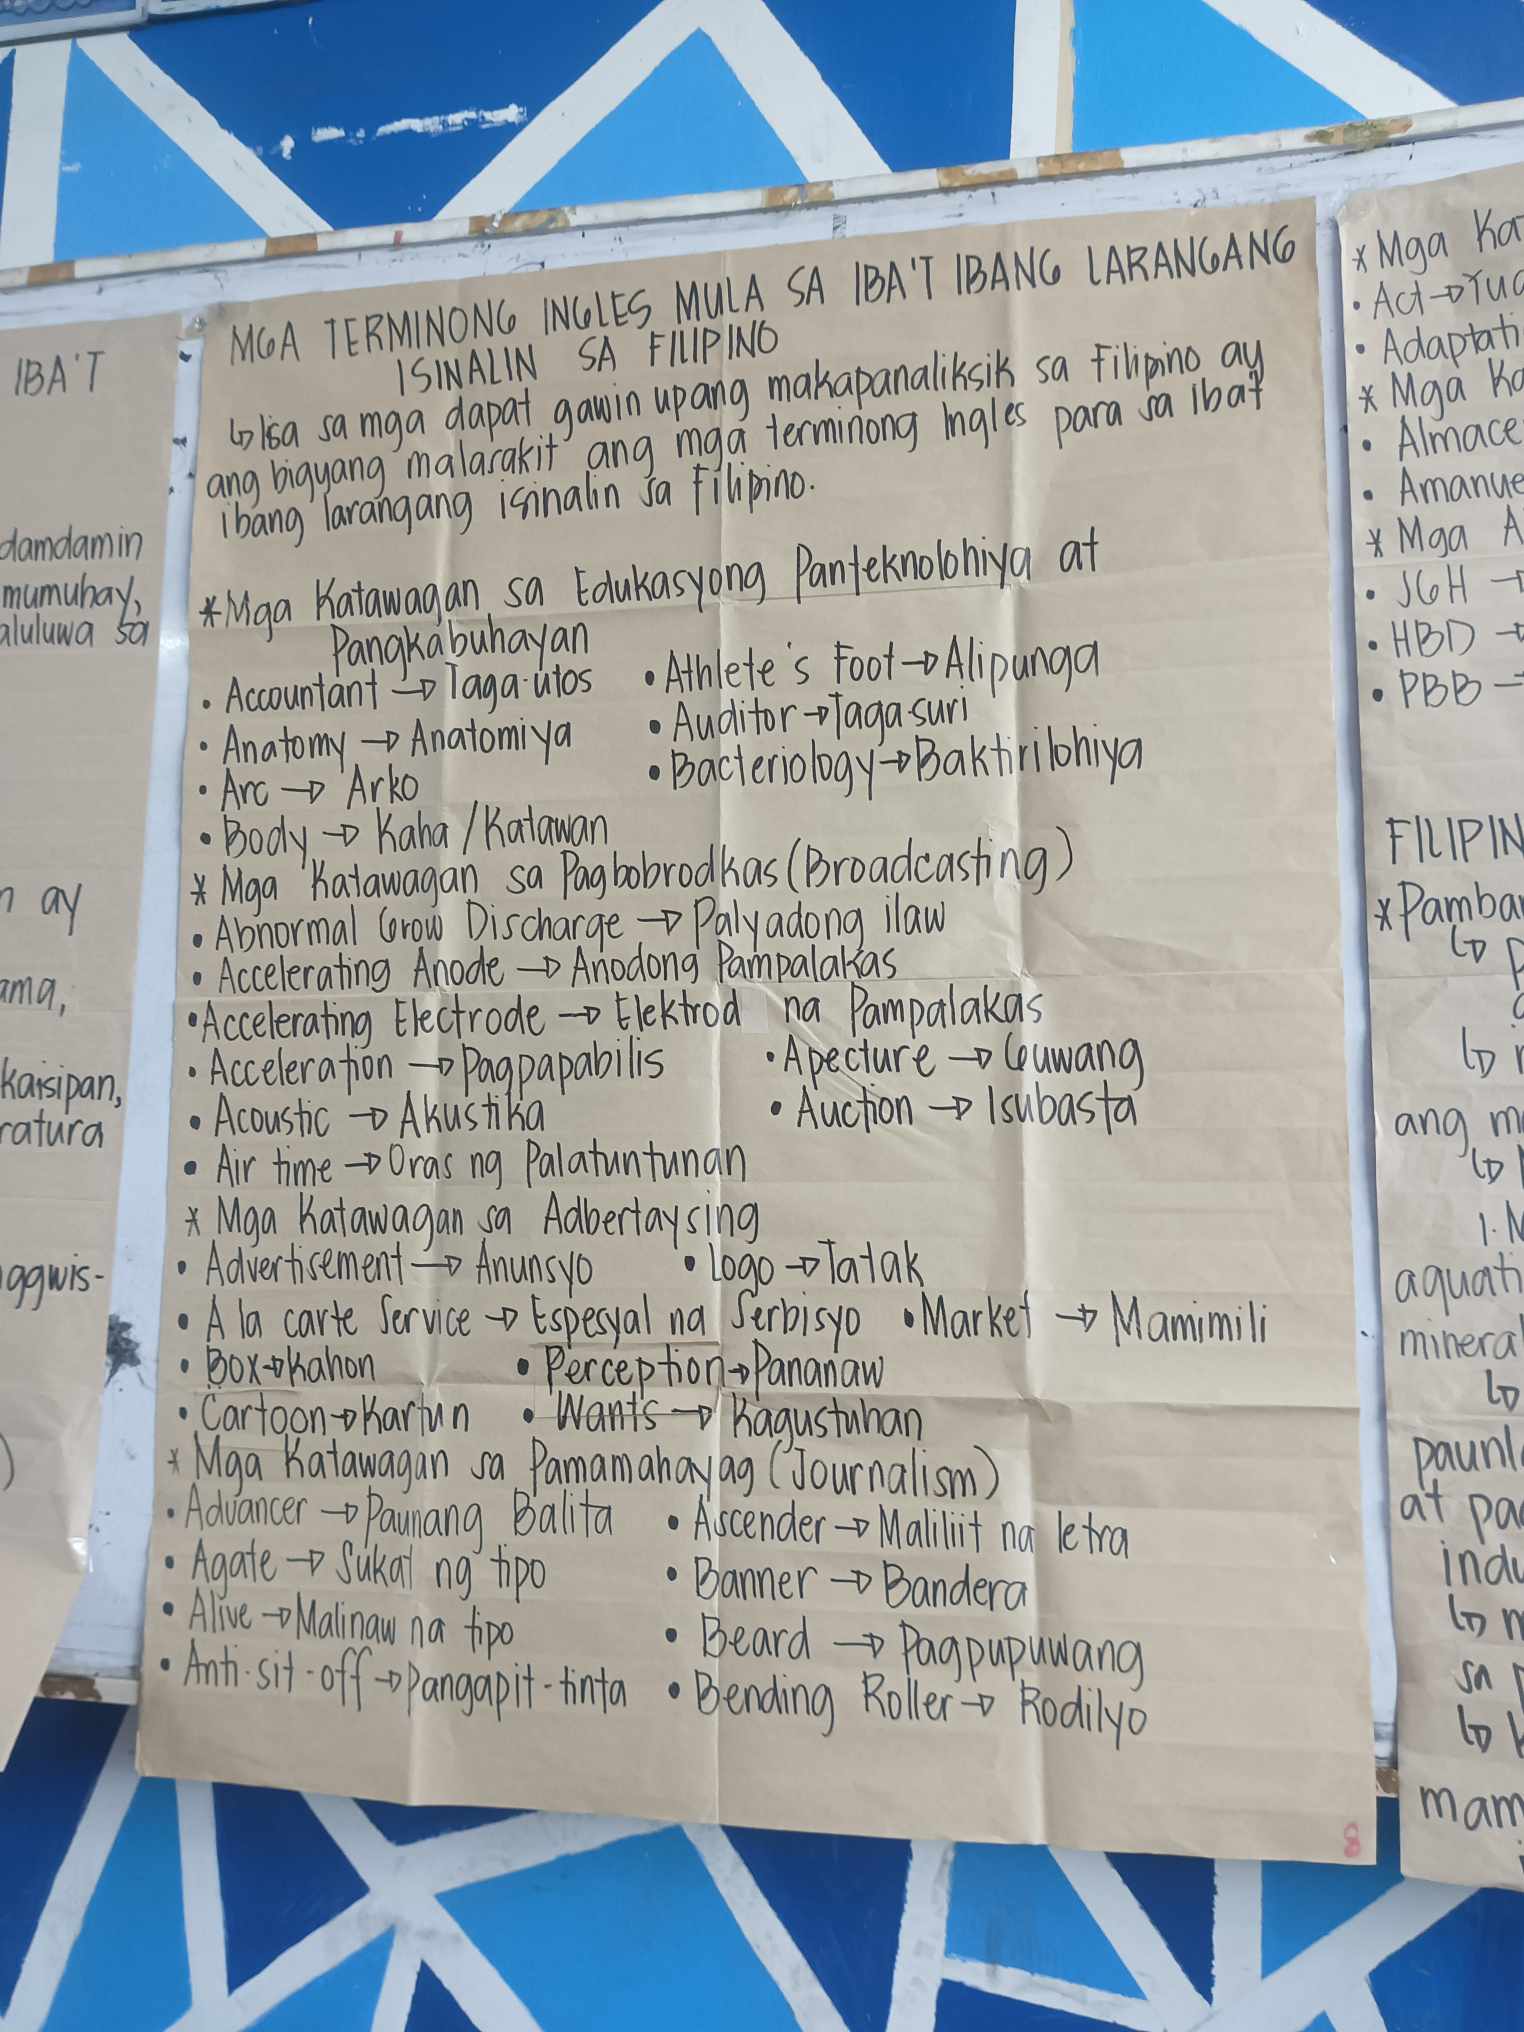 IBA'T
damdamin
mumuhay,
aluluwa sa
ay
ama,
kaisipan,
ratura
ggwis-
MGA TERMINONG INGLES MULA SA IBA'T IBANG LARANGANG
ISINALIN SA FILIPINO
↳ Isa sa mga dapat gawin upang makapanaliksik sa Filipino ay
ang bigyang malasakit ang mga terminong Ingles para sa ibat
ibang larangang isinalin sa Filipino.
* Mga Katawagan sa Edukasyong Panteknolohiya at
Pangkabuhayan
• Accountant → Taga-utos • Athlete's Foot → Alipunga
• Anatomy → Anatomiya • Auditor → Taga-suri
• Arc → Arko • Bacteriology → Baktirilohiya
• Body → Kaha / Katawan
* Mga Katawagan sa Pagbobrodkas (Broadcasting)
• Abnormal Grow Discharge → Palyadong ilaw
• Accelerating Anode → Anodong Pampalakas
• Accelerating Electrode → Elektrod na Pampalakas
• Acceleration → Pagpapabilis • Apecture → Guwang
• Acoustic → Akustika • Auction → Isubasta
• Air time → Oras ng Palatuntunan
* Mga Katawagan sa Adbertaysing
• Advertisement → Anunsyo • Logo → Tatak
• A la carte Service → Espesyal na Serbisyo • Market → Mamimili
• Box → Kahon • Perception → Pananaw
• Cartoon → Kartun • Wants → Kagustuhan
* Mga Katawagan sa Pamamahayag (Journalism)
• Advancer → Paunang Balita • Ascender → Maliliit na letra
• Agate → Sukat ng tipo • Banner → Bandera
• Alive → Malinaw na tipo • Beard → Pagpupuwang
• Anti-sit-off → Pangapit-tinta • Bending Roller → Rodilyo
8
* Mga Ka
• Act → Tu
• Adaptati
* Mga Ka
• Almace
• Amanue
* Mga A
• JGH →
• HBD →
• PBB →
FILIPIN
* Pamba
ang m
1. N
aquati
mineral
paunl
at pa
indu
sa p
mam